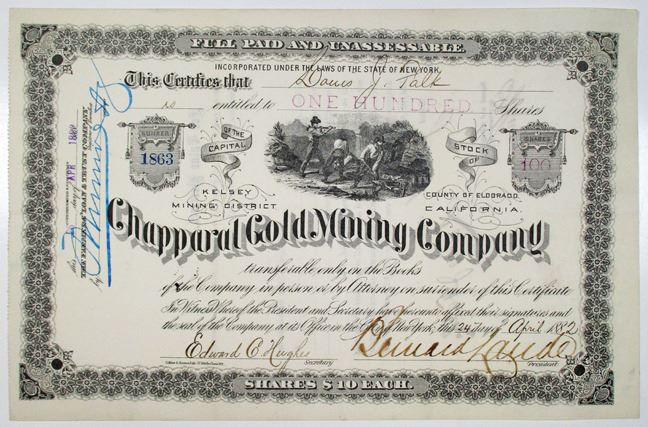 FULL PAID AND UNASSESSABLE.
INCORPORATED UNDER THE LAWS OF THE STATE OF NEW YORK.
This Certifies that Louis J. Falk
is entitled to ONE HUNDRED Shares
NUMBER
1863
OF THE CAPITAL
STOCK OF
SHARES
100
KELSEY MINING DISTRICT
COUNTY OF ELDORADO, CALIFORNIA.
Chapparal Gold Mining Company
transferable only on the Books
of the Company in person or by Attorney on surrender of this Certificate
In Witness Whereof the President and Secretary have hereunto affixed their signatures and
the seal of the Company at its Office in the City of New York, this 24 day of April 1882
Edward C. Hughes Secretary
Bernard President
SHARES $10 EACH.
APR 1882